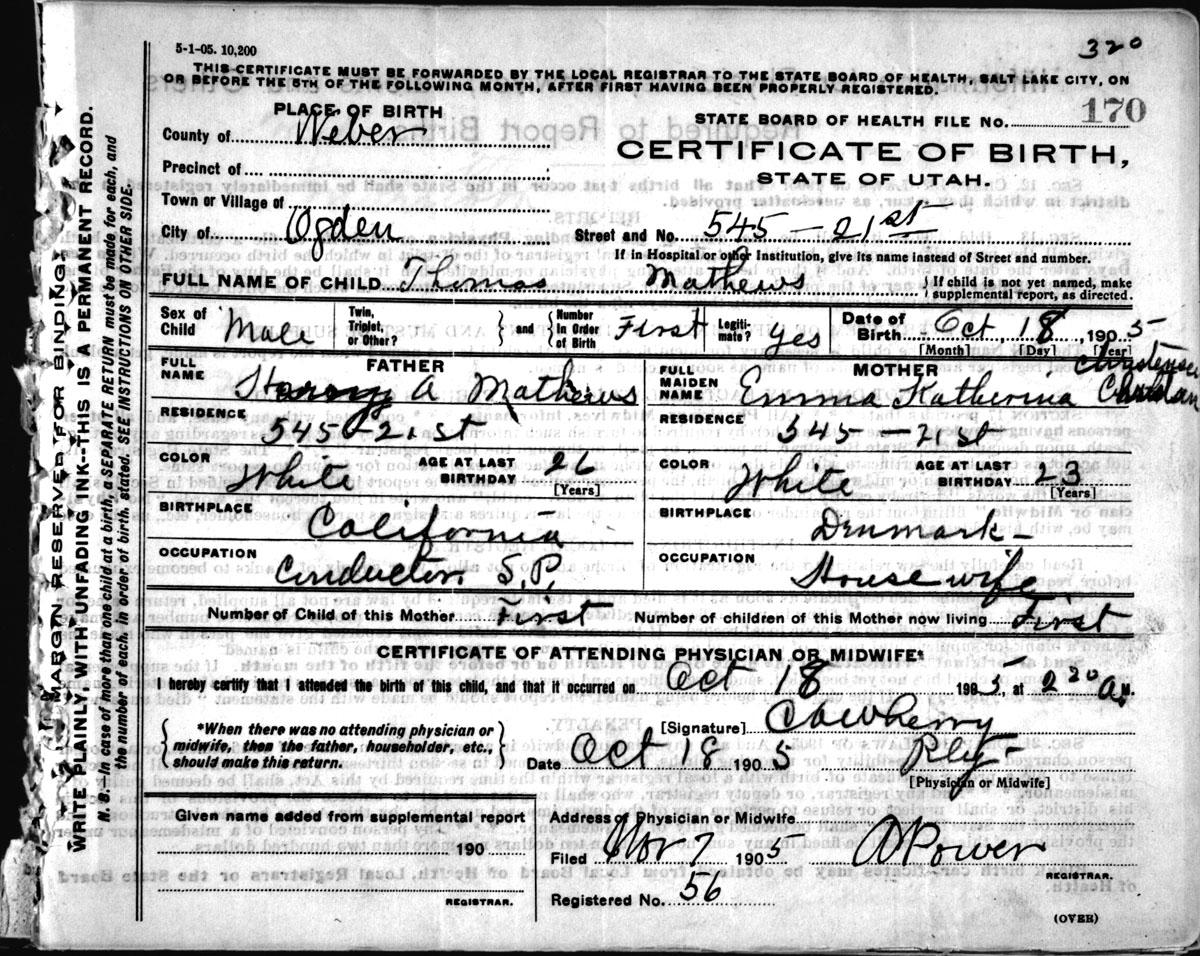 5-1-05. 10,200
320
THIS CERTIFICATE MUST BE FORWARDED BY THE LOCAL REGISTRAR TO THE STATE BOARD OF HEALTH, SALT LAKE CITY, ON
OR BEFORE THE 5TH OF THE FOLLOWING MONTH, AFTER FIRST HAVING BEEN PROPERLY REGISTERED.
PLACE OF BIRTH
County of Weber
STATE BOARD OF HEALTH FILE NO. 170
CERTIFICATE OF BIRTH,
STATE OF UTAH.
Precinct of
Town or Village of
City of Ogden
Street and No. 545 - 21st
If in Hospital or other Institution, give its name instead of Street and number.
FULL NAME OF CHILD Thomas Mathews
If child is not yet named, make supplemental report, as directed.
Sex of Child Male
Twin, Triplet, or Other?
and
Number In Order of Birth First
Legitimate? yes
Date of Birth Oct 18 1905
[Month] [Day] [Year]
FATHER
FULL NAME Harry A Mathews
RESIDENCE
545 - 21st
COLOR White
AGE AT LAST BIRTHDAY 26
[Years]
BIRTHPLACE
California
OCCUPATION
Conductor S.P.
MOTHER
FULL MAIDEN NAME Emma Katherina
RESIDENCE
545 - 21st
COLOR White
AGE AT LAST BIRTHDAY 23
[Years]
BIRTHPLACE
Denmark -
OCCUPATION
Housewife
Number of Child of this Mother First
Number of children of this Mother now living First
CERTIFICATE OF ATTENDING PHYSICIAN OR MIDWIFE*
I hereby certify that I attended the birth of this child, and that it occurred on Oct 18 1905, at 2 20 A M.
*When there was no attending physician or
midwife, then the father, householder, etc.,
should make this return.
[Signature]
Date Oct 18 1905
[Physician or Midwife]
Given name added from supplemental report
190
REGISTRAR.
Address of Physician or Midwife
Filed Nov 7 1905
A Power
REGISTRAR.
Registered No. 56
(OVER)
MARGIN RESERVED FOR BINDING.
WRITE PLAINLY, WITH UNFADING INK--THIS IS A PERMANENT RECORD.
N. B.—In case of more than one child at a birth, a SEPARATE RETURN must be made for each, and
the number of each, in order of birth, stated. SEE INSTRUCTIONS ON OTHER SIDE.